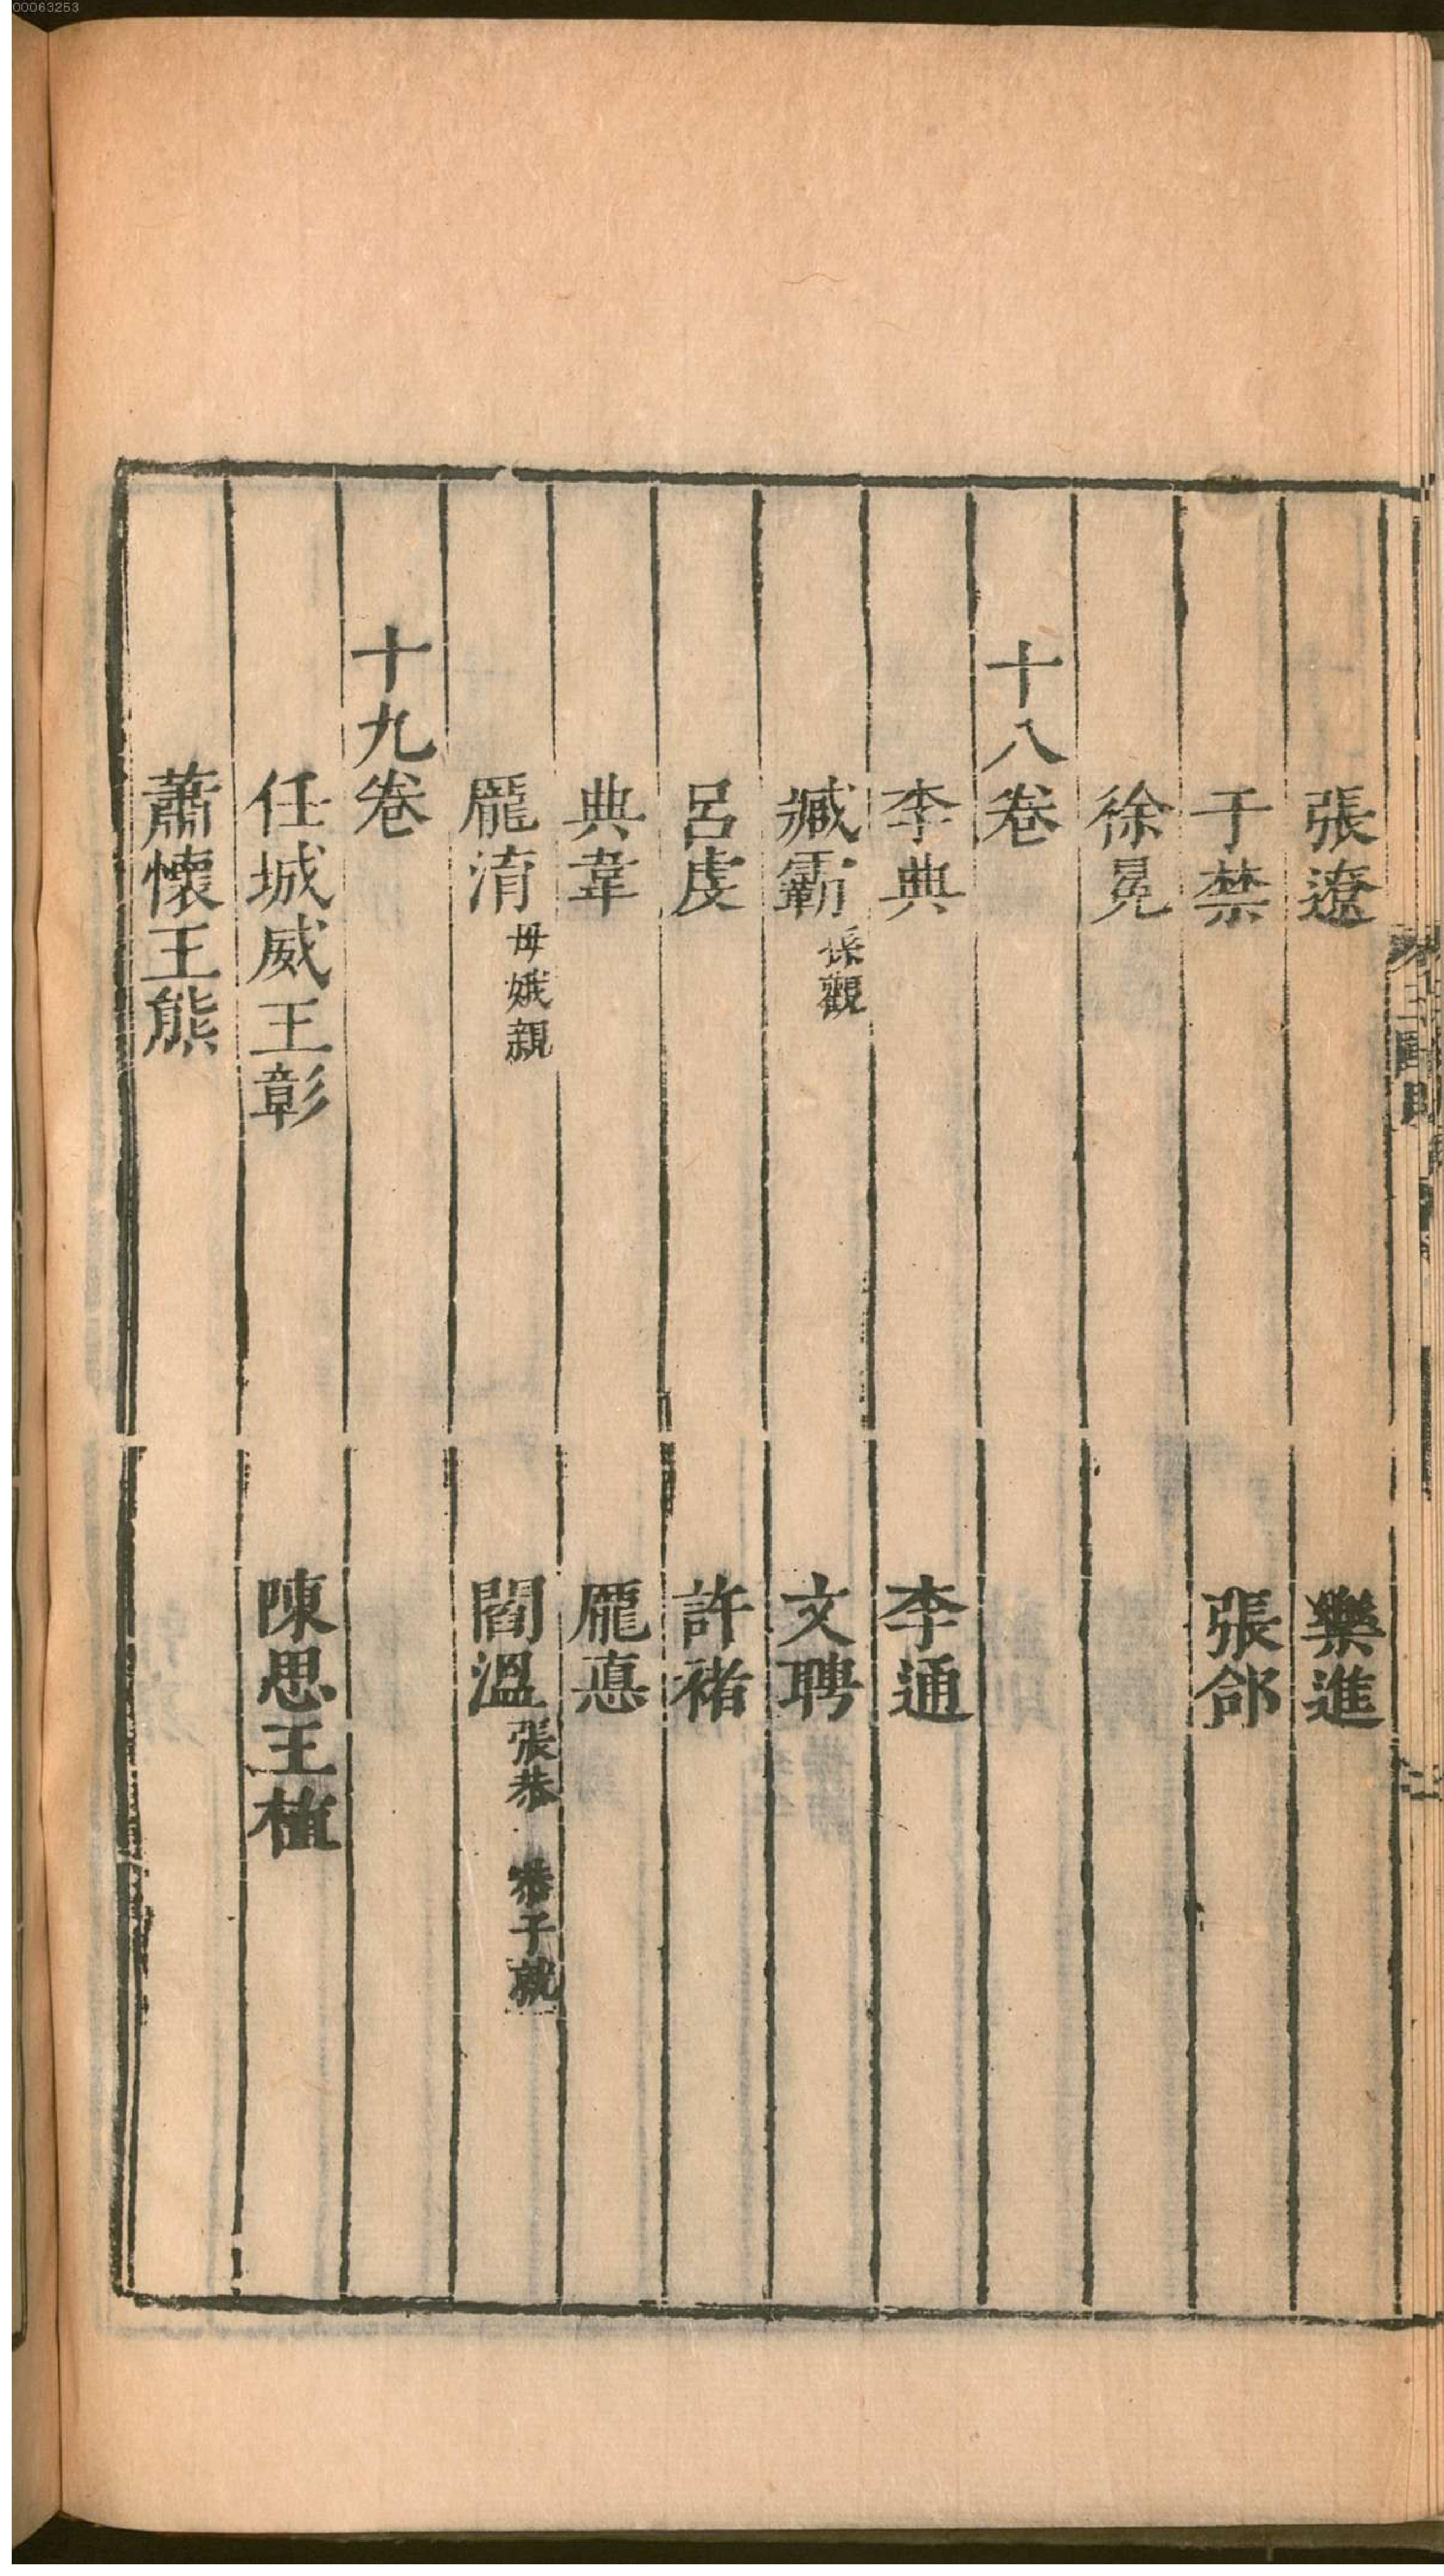 00063253
張遼 樂進
于禁 張郃
徐晃
十八卷
李典 李通
臧霸 孫觀 文聘
呂虔 許褚
典韋 龐悳
龐淯 母娥親 閻溫 張恭 恭子就
十九卷
任城威王彰 陳思王植
蕭懷王熊